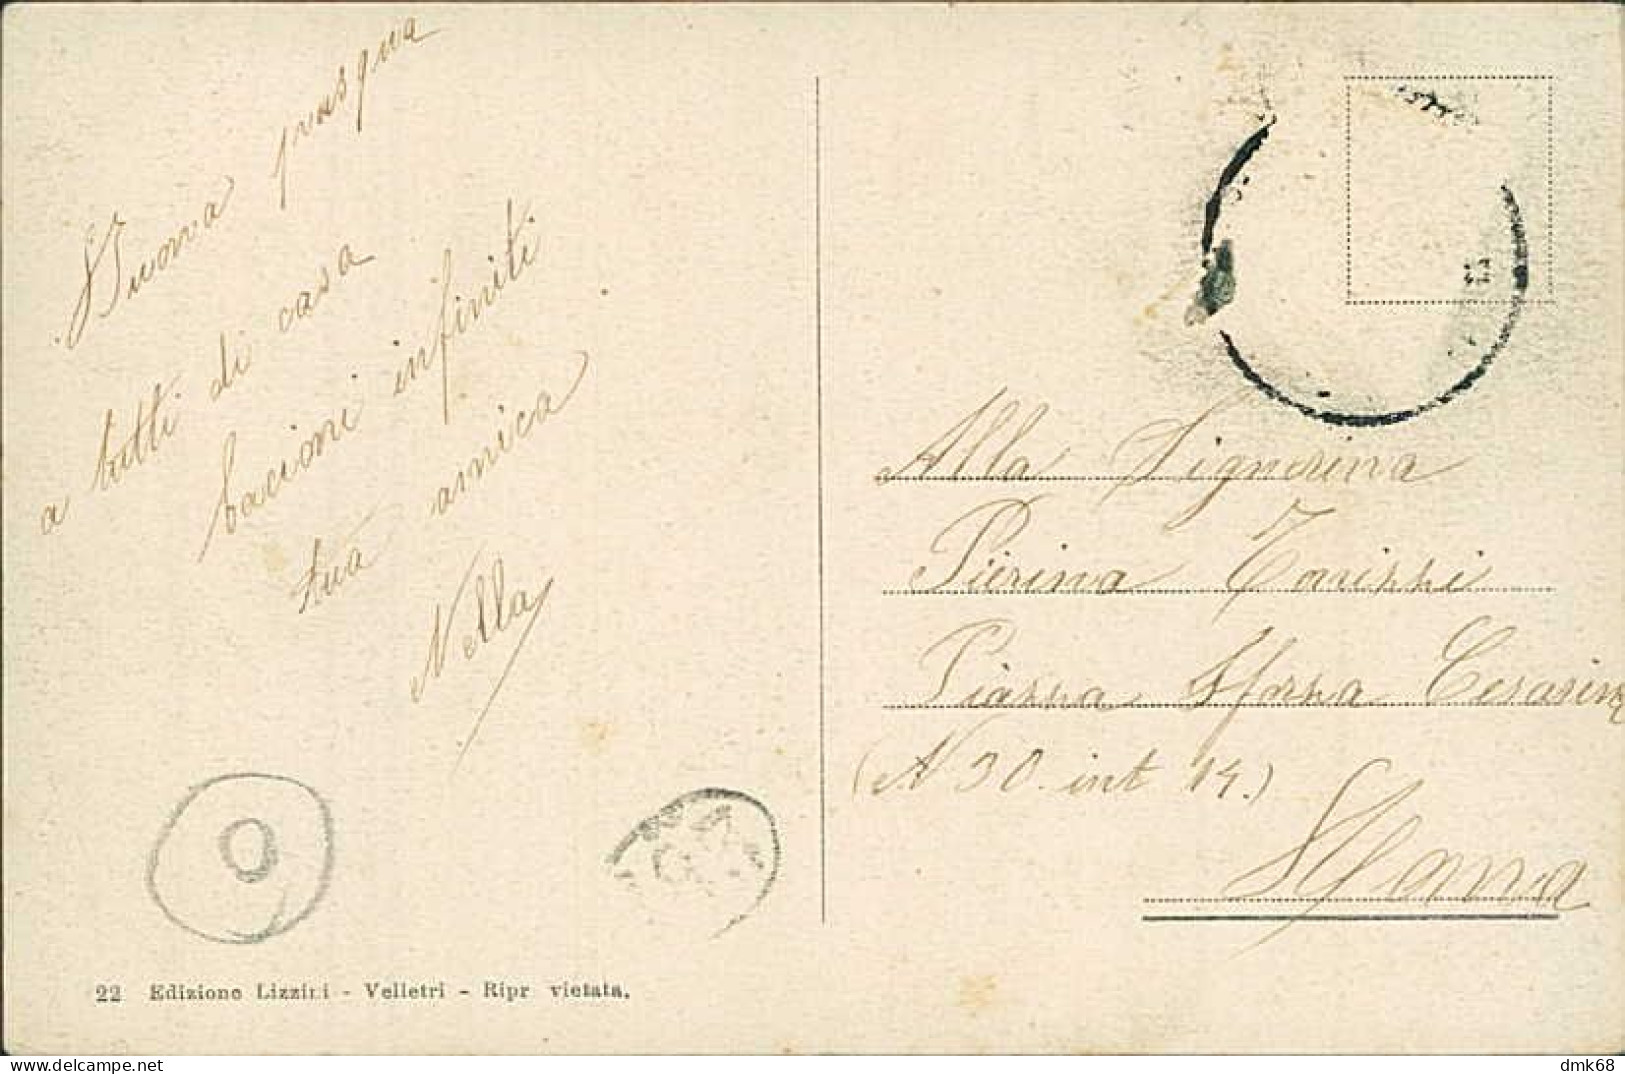 Buona pasqua
a tutti di casa
bacioni infiniti
tua amica
Nella
22 Edizione Lizzini - Velletri - Ripr vietata.
Alla Signorina
Pierina
Piazza Sforza Cesarini
(N 30. int 14.)
Roma
dmk68